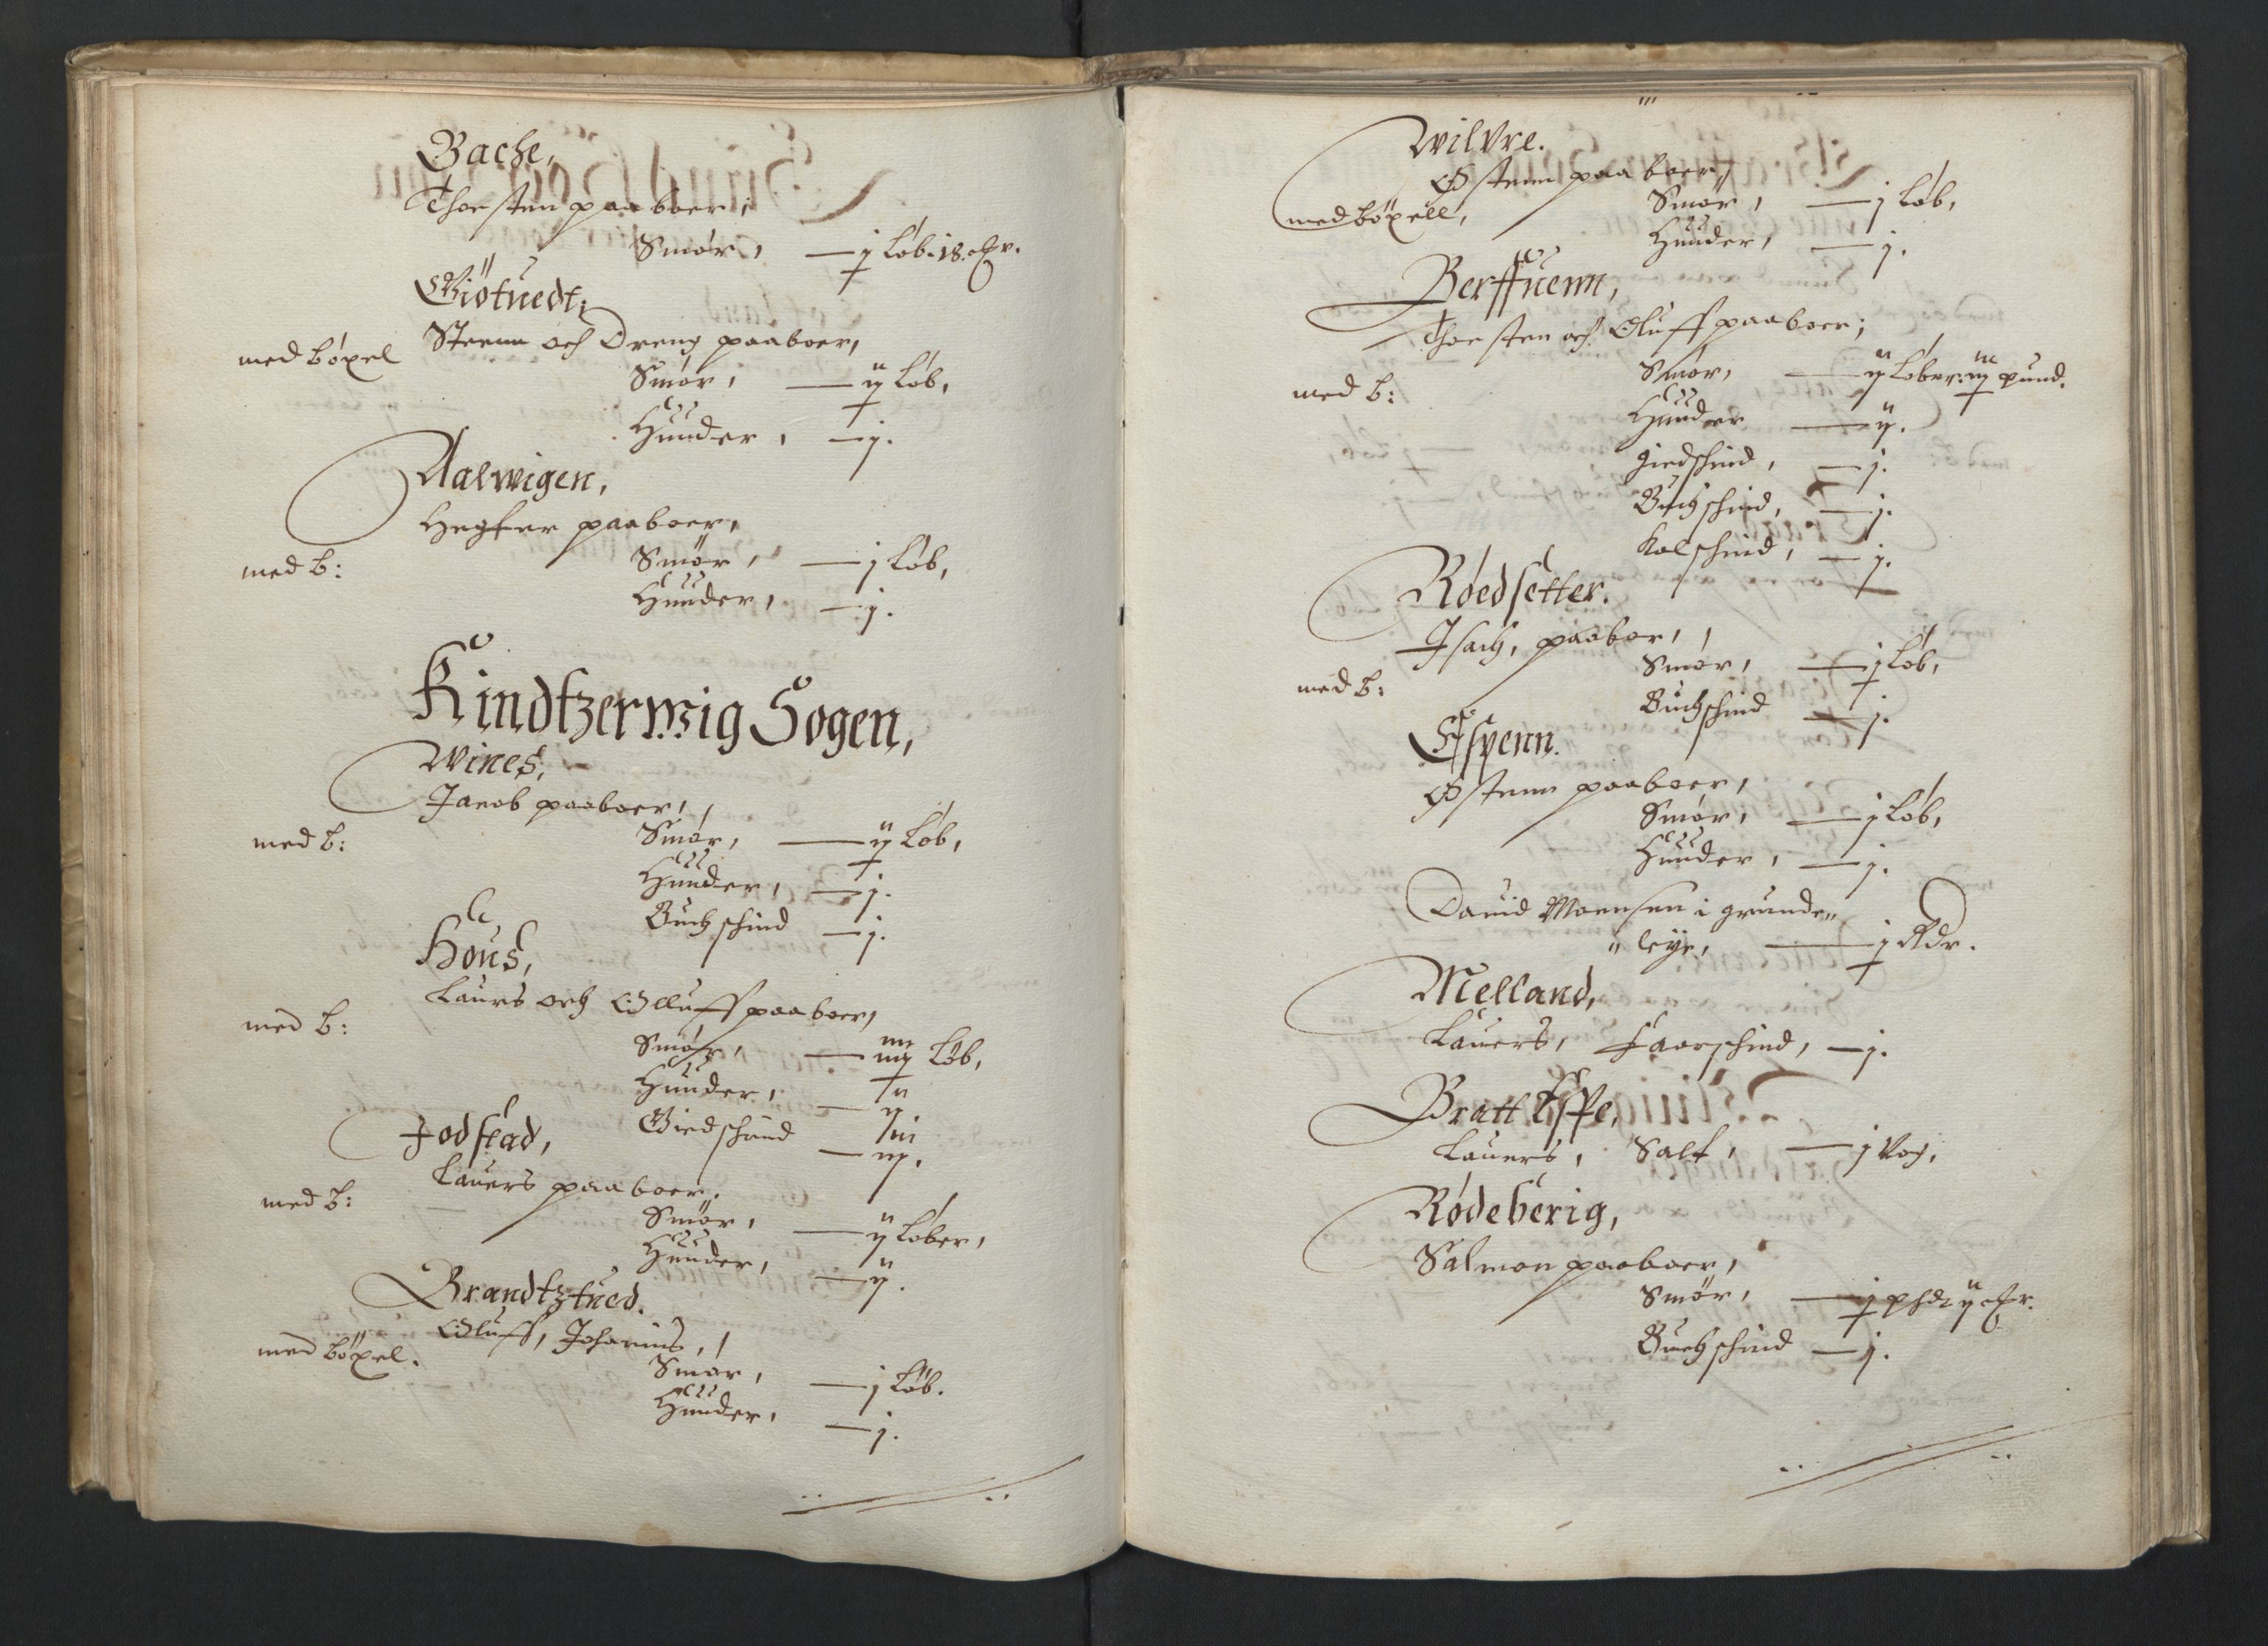 Bache,
Thorsten paaboer,
Smør, — j Løb. 18. mr.
Giötuedt,
med böxel Steenn och Dreng paaboer,
Smør, — ij Løb,
Huuder, — j.
Aalwigen,
Hegter paaboer,
med b: Smør, — j Løb,
Huuder, — j.
Kindtzerwig Sogen,
Wines,
Jacob paaboer,
med b: Smør, — ij Løb,
Huuder, — j.
Buchschind — j.
Hous,
Laurs och Olluff paaboer,
med b: Smør, — iiij Løb,
Huuder, — ij.
Giedschind — iij.
Jodstad,
Lauers paaboer,
med b: Smør, — ij Løber,
Huuder, — ij.
Brandtztued.
Oluff, Johannis,
med böxel. Smør, — j Løb.
Huuder, — j.
Wilure.
Østenn paa boer,
med böxell, Smør, — j Løb,
Huuder, — j.
Berffuenn,
Thorsten och Oluff paaboer,
med b: Smør, — ij Løber: iij pund.
Huuder — ij.
Giedschind, — j.
Buchschind, — j.
Kalschind, — j.
Röedsetter.
Isach, paaboer,
med b: Smør, — j Løb,
Buchschind — j.
Espenn.
Østenn paaboer,
Smør, — j Løb,
Huuder, — j.
Dauid Monsen i grunde„
„leye, — j Rdr.
Melland,
Lauers, Faarschind, — j.
Bratt Espe,
Lauers, Salt, — j Vog,
Rödeberig,
Salmon paaboer,
Smør, — j pd ij mr.
Buchschind — j.